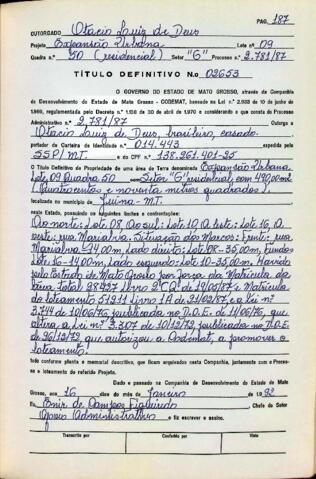 PAG. 187
OUTORGADO Otacio Luiz de Deus
Projeto Expansão Urbana Lote nº 09
Quadra n.º 50 (residencial) Setor "G" Processo n.º 2.781/87
TÍTULO DEFINITIVO N.o 02653
O GOVERNO DO ESTADO DE MATO GROSSO, através da Companhia de
Desenvolvimento do Estado de Mato Grosso - CODEMAT, baseado na Lei n.º 2.933 de 10 de junho de
1969, regulamentada pelo Decreto n.º 1.138 de 30 de abril de 1970 e considerando o que consta do Processo
Administrativo n.º 2.781/87 Outorga a
Otacio Luiz de Deus, brasileiro, casado.
portador da Carteira de Identidade n.º 014.443 expedida pela
SSP/MT. e do CPF nº 138.261.401-25
O Título Definitivo de Propriedade de uma área de Terra denominada Expansão Urbana
Lote 09 Quadra 50 Setor "G" residencial, com 490,00m2
(Quatrocentos e noventa metros quadrados).
localizada no município de Juína-MT.
neste Estado, possuindo os seguintes limites e confrontações:
Ao norte: Lote 08, Ao sul: Lote 10, A leste: Lote 16, A
oeste: rua Marialva. Situação dos Marcos: Frente: rua
Marialva-14,00m, Lado direito: Lote 08-35,00m, Fundos
Lote 16-14,00m, Lado esquerdo: Lote 10-35,00m. Havido
pelo Estado de Mato Grosso por força da Matricula da
área total 28427 livro 2 CQ de 19/05/87 e Matricula
do loteamento 51911 livro 1A de 21/02/87 e a lei nº
3.744 de 10/06/76, publicada no D.O.E. de 11/06/76, que
altera a lei nº 3.307 de 10/12/72, publicada no D.O.E.
de 26/12/72 que autorizou a Codemat, a promover o
loteamento.
tudo conforme planta e memorial descritivo, que ficam arquivados nesta Companhia, juntamente com o Proces-
so e loteamento do referido Projeto.
Dado e passado na Companhia de Desenvolvimento do Estado de Mato
Grosso, aos 16 dias do mês de Janeiro de 1.992
Eu Enir de Campos Figueiredo Chefe do Setor
Apoio Administrativo o fiz escrever e assino.
Transcrito por Conferido por Visto